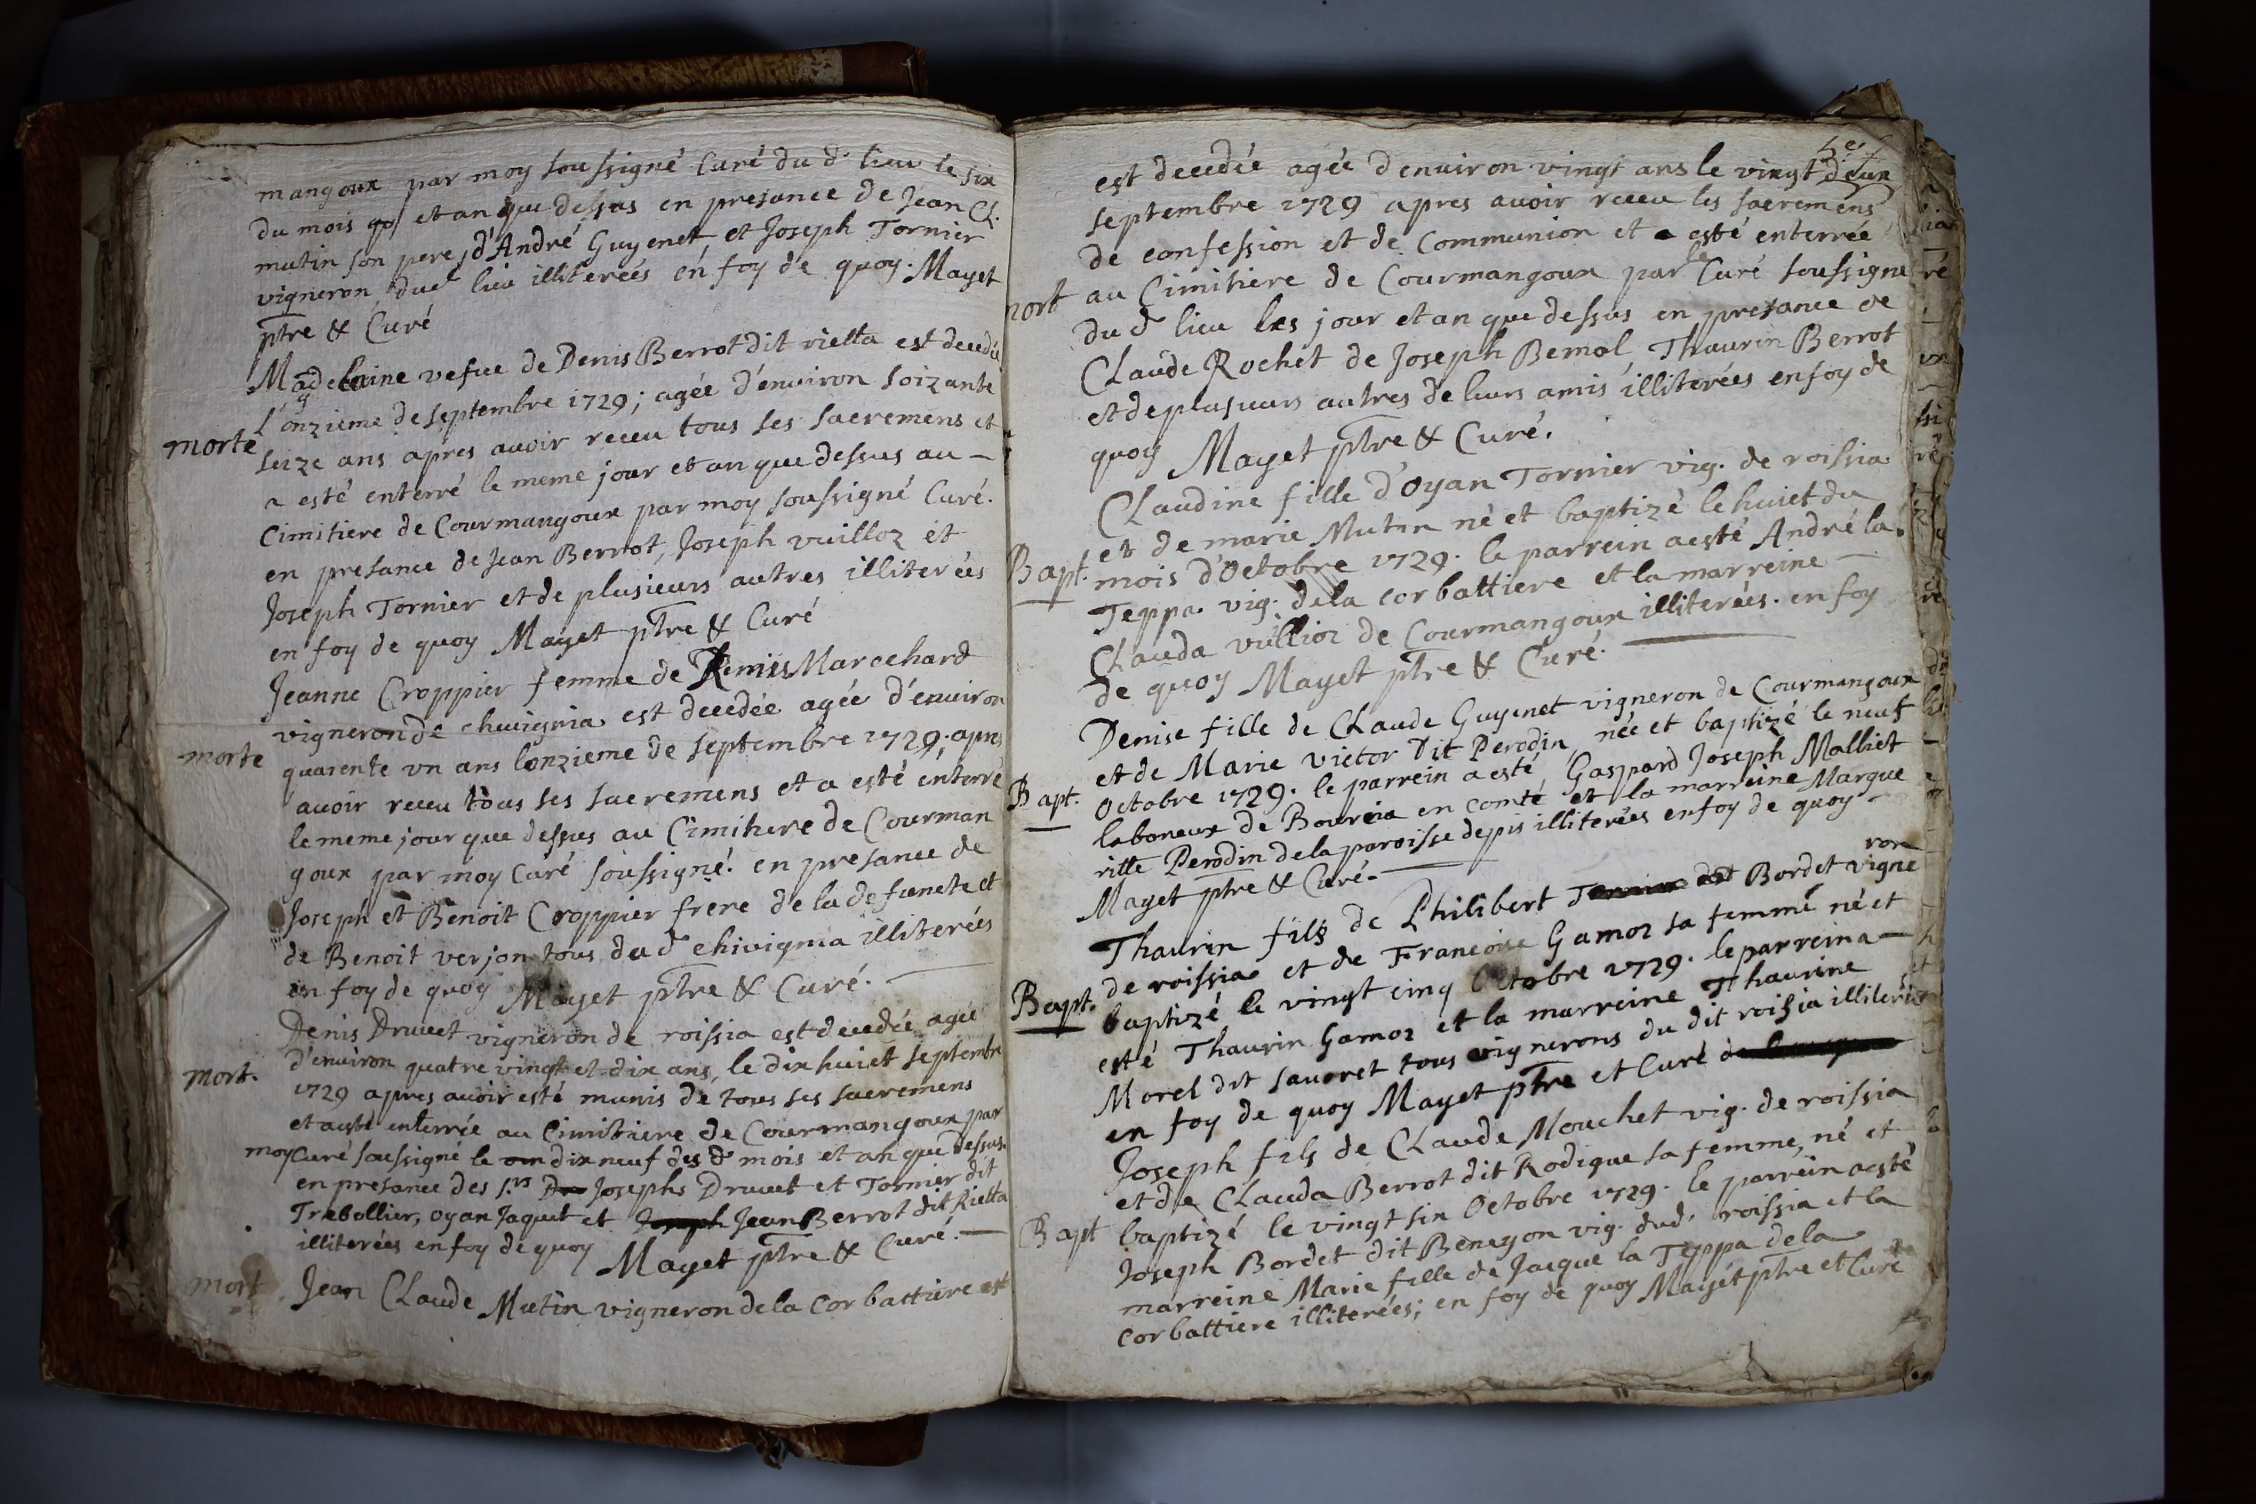 mangoux par moy soussigné Curé du d. lieu le six
du mois et an que dessus en presance de Jean Cl.
mutin son pere, d'André Guyenet, et Joseph Tornier
vigneron dud lieu illiterées en foy de quoy. Mayet
ptre & Curé
Madelaine vefue de Denis Berrot dit rietta est decedée
l'onzieme de septembre 1729; agée d'environ soizante
morte
seize ans apres avoir receu tous ses sacremens et
a esté enterré le meme jour et an que dessus au –
Cimitiere de Courmangoux par moy soussigné Curé.
en presance de Jean Berrot, Joseph vuilloz et
Joseph Tornier et de plusieurs autres illiterées
en foy de quoy Mayet ptre & Curé
Jeanne Croppier femme de Denis Marechard
vigneron de chuignia est decedée agée d'environ
morte
quarente vn ans l'onzieme de septembre 1729; apres
avoir receu tous ses sacremens et a esté enterré
le meme jour que dessus au Cimitiere de Courman
goux par moy Curé soussigné. en presance de
Joseph et Benoit Croppier frere de la defuncte et
de Benoit verjon tous dud chivignia illiterées
en foy de quoy Mayet ptre & Curé. —
Denis Druuet vigneron de roissia est decedée agée
d'environ quatre vingt et dix ans, le dix huict septembre
mort.
1729 apres avoir esté munis de tous ses sacremens
et a esté enterrée au Cimitiere de Courmangoux par
moy Curé soussigné le dix neuf des d mois et an que dessus
en presance des s.rs Josephs Druuet et Tornier dit
Trebollier, oyan Jaquet et Joseph Jean Berrot dit Rietta
illiterées en foy de quoy Mayet ptre & Curé. —
mort
Jean Claude Mutin vigneron de la Corbattiere
est decedée agée d'environ vingt ans le vingt deux
septembre 1729 apres avoir receu les sacremens
de confession et de Communion et a esté enterrée
mort
au Cimitiere de Courmangoux par le Curé soussigné
du d lieu les jour et an que dessus en presance de
Claude Rochet de Joseph Bemol Thaurin Berrot
et de plusieurs autres de leurs amis illiterées en foy de
quoy Mayet ptre & Curé.
Claudine fille d'Oyan Tornier vig. de roissia
et de marie Mutin né et baptizé le huict du
Bapt.
mois d'Octobre 1729. le parrein a esté André la
Teppa vig. de la corbattiere et la marreine —
Clauda vullioz de Courmangoux illiterées. en foy
de quoy Mayet ptre & Curé. —
Denise fille de Claude Guyenet vigneron de Courmangoux
et de Marie victor Dit Perodin, née et baptizé le neuf
Bapt.
Octobre 1729. le parrein a esté Gaspard Joseph Malliet
laboneux de Bourcia en comté et la marreine Margue
ritte Perodin de la paroisse depis illiterées en foy de quoy —
Mayet ptre & Curé. —
Thaurin fils de Philibert Bordet vigne
ron
de roissia et de Francoise Gamoz sa femme né et
Bapt.
baptizé le vingt cinq Octobre 1729. le parrein a —
esté Thaurin Gamoz et la marreine Thaurine
Morel dit sauoret tous vignerons du dit roissia illiterées
en foy de quoy Mayet ptre et Curé
Joseph fils de Claude Mouchet vig. de roissia
et de Clauda Berrot dit Rodique sa femme, né et
Bapt
baptizé le vingt six Octobre 1729. le parrein a esté
Joseph Bordet dit Beneyon vig. dud. roissia et la
marreine Marie fille de Jacque la Teppa de la
corbattiere illiterées; en foy de quoy Mayet ptre et Curé